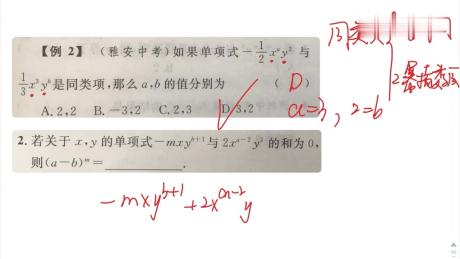 【例 2】 (雅安中考)如果单项式 -1/2 x^a y^2 与
1/3 x^3 y^b 是同类项,那么 a,b 的值分别为 ( D )
A. 2,2 B. -3,2 C. 2,3 D. 3,2
a=3, 2=b
2. 若关于 x,y 的单项式 -mxy^{b+1} 与 2x^{a-2}y^3 的和为 0,
则(a-b)^m=________.
-mxy^{b+1}+2x^{a-2}y